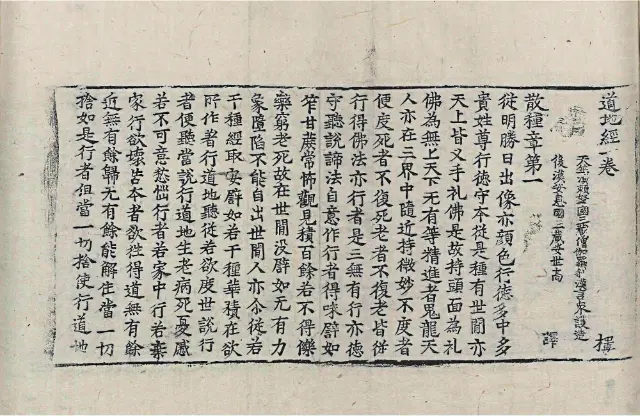 道地經一卷 擇
天竺須賴拏國三藏僧伽羅剎漢言眾護造
後漢安息國三藏安世高 譯
散種章第一
從明勝日出像亦顏色行德多中多
寶姓尊行德守本從是種有世間亦
天上皆叉手礼佛是故持頭面為礼
佛為無上天下无有等精進者鬼龍天
人亦在三界中隨近持微妙不度者
便度死者不復死老者不復老皆從
行得佛法亦行者是三無有行亦德
守聽說諦法自意作行者得味譬如
笮甘蔗常怖觀見積百餘若不得
藥窮老死故在世間没譬如无有力
象墮陷不能自出世間人亦尒從若
干種經取譬如若干種華積在欲
所作者行道地聽從若欲度世說行
者便聽當說行道地生老病死憂慼
若不可意愁惱行者若家中行若棄
家行欲壞苦本者欲性得道無有餘
近無有餘歸无有餘能解住當一切
捨如是行者但當一切捨使行道地